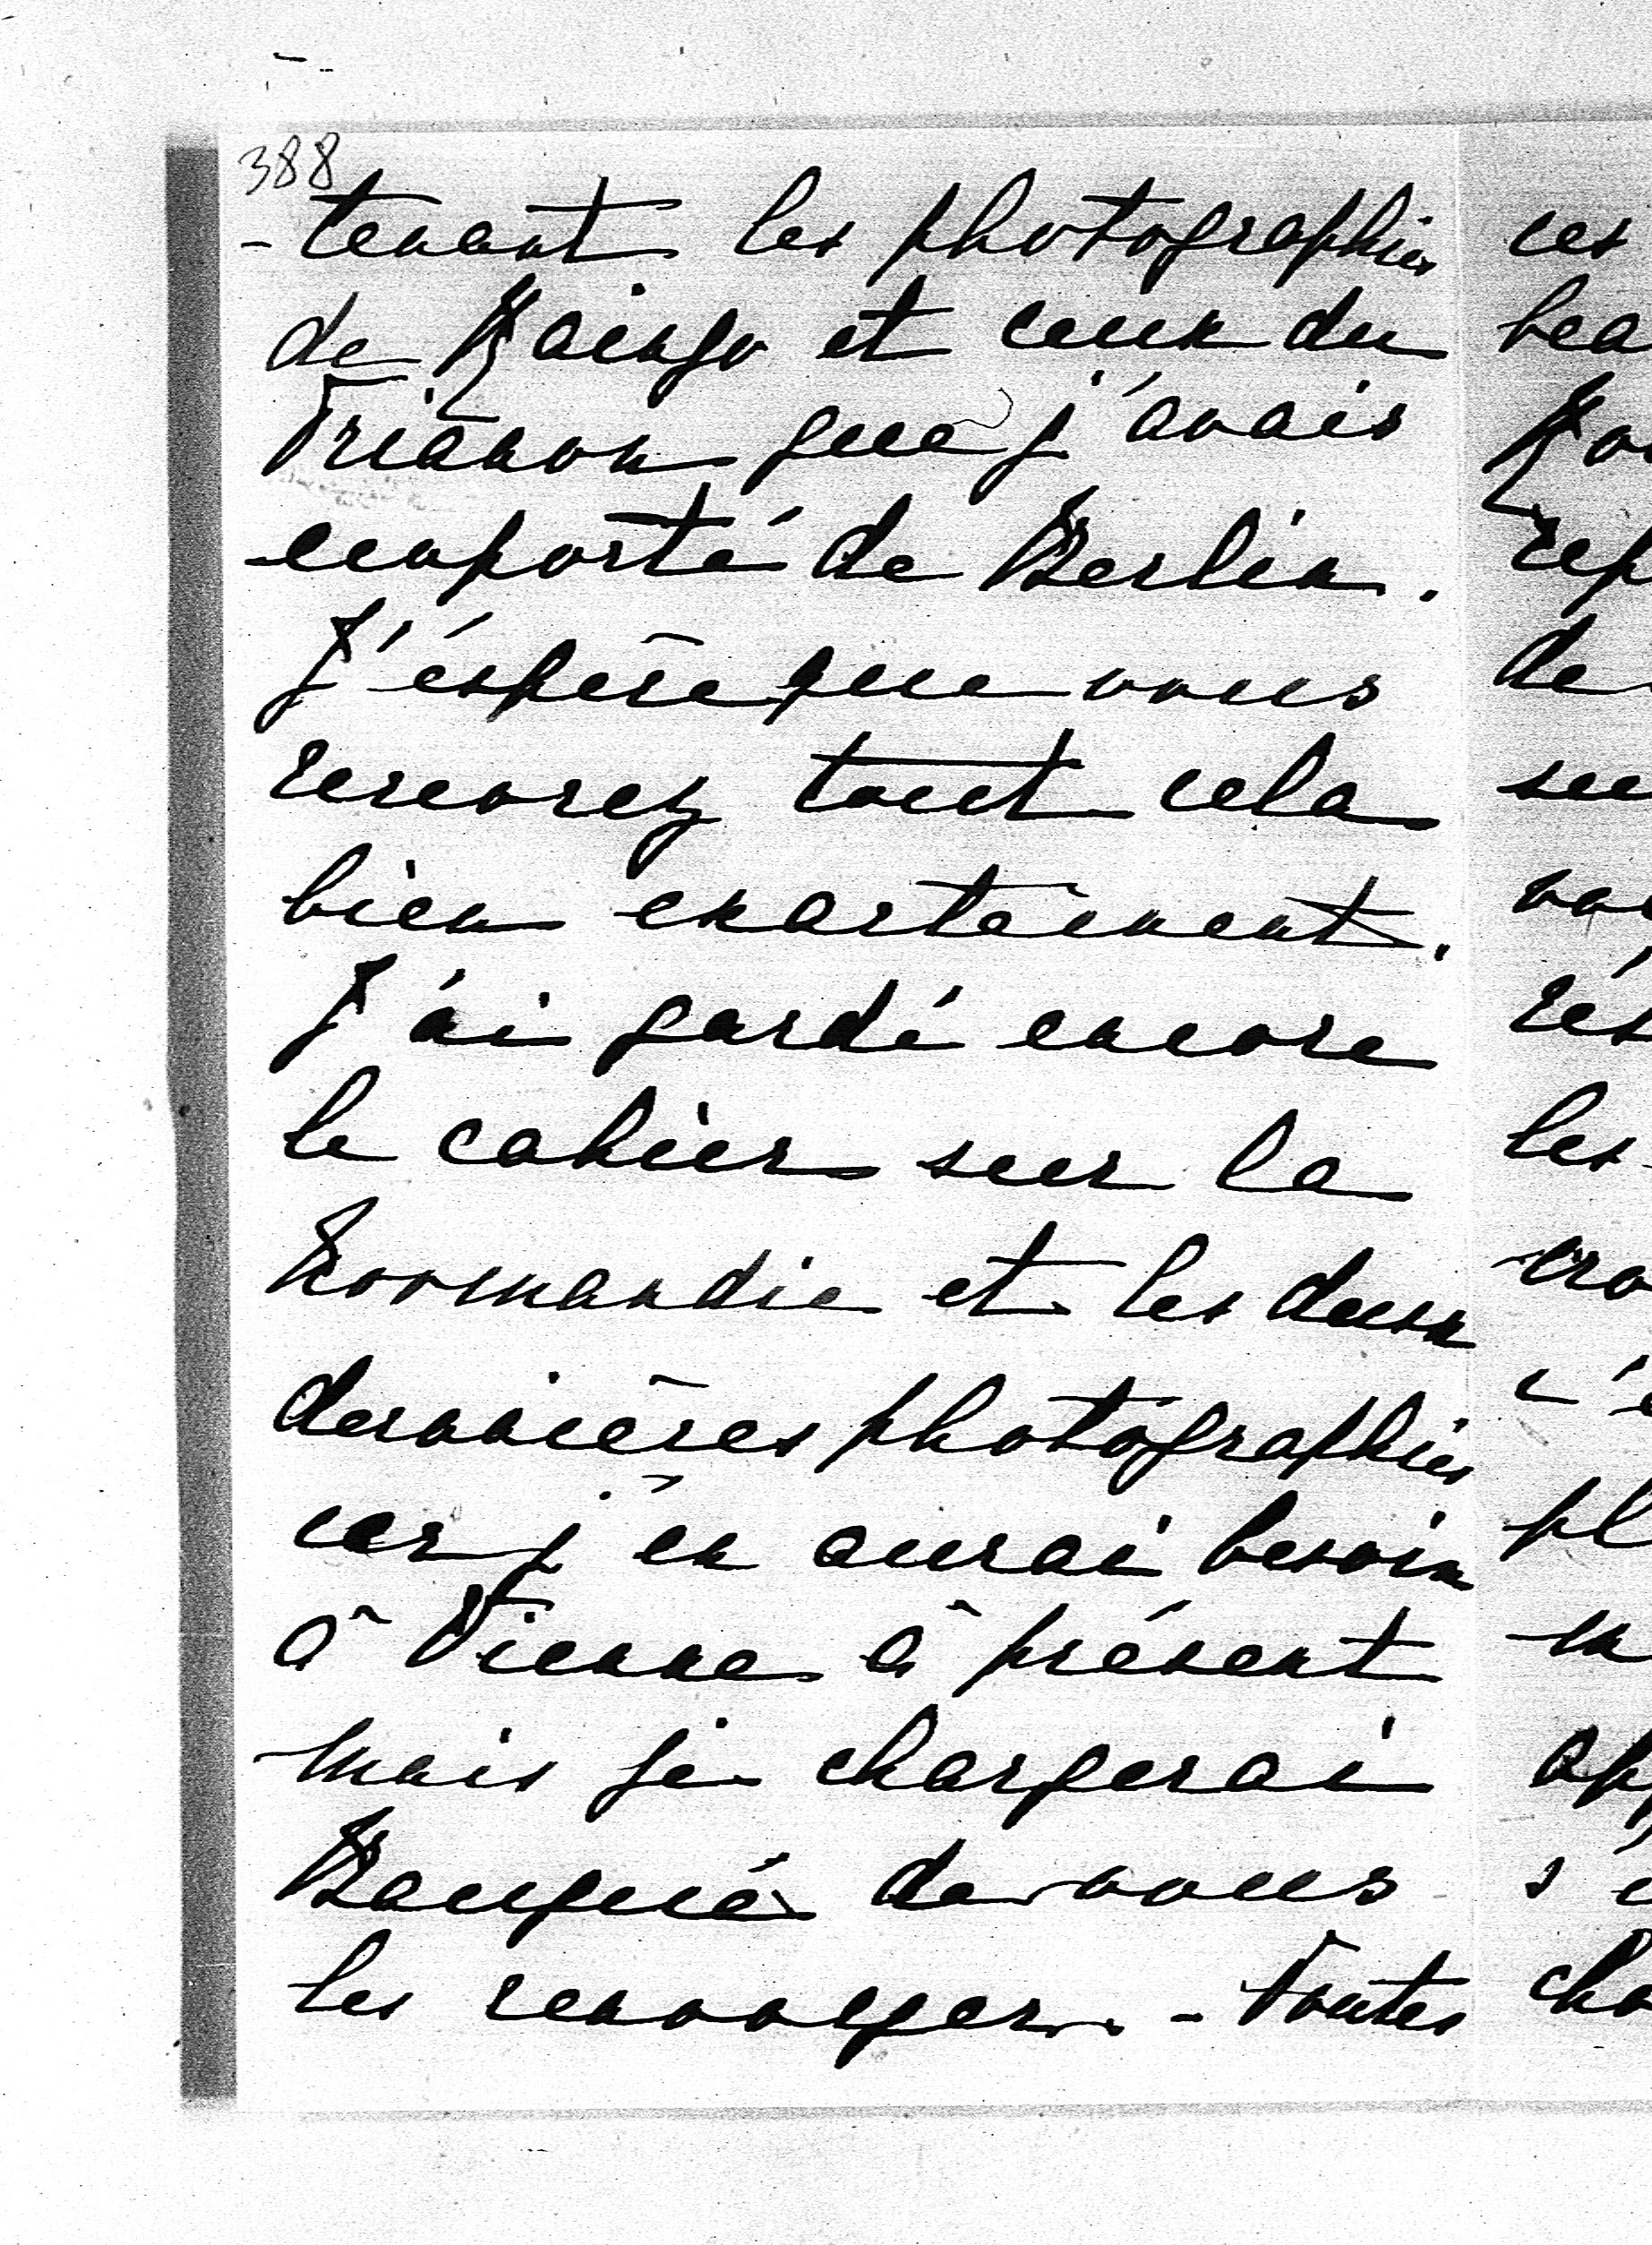 388
-tenant les photographies ces
de Raingo et ceux du bea
Trianon que j'avais
emporté de Berlin. rep
J'éspère que vous de
recevrez tout cela
bien exactement.
J'ai gardé encore rés
le cahier sur la les
Normandie et les deux
dernières photographies
car j'en aurai besoin pl
à Vienne à présent
mais je chargerai
de vous
les renvoyer. - Toutes cho